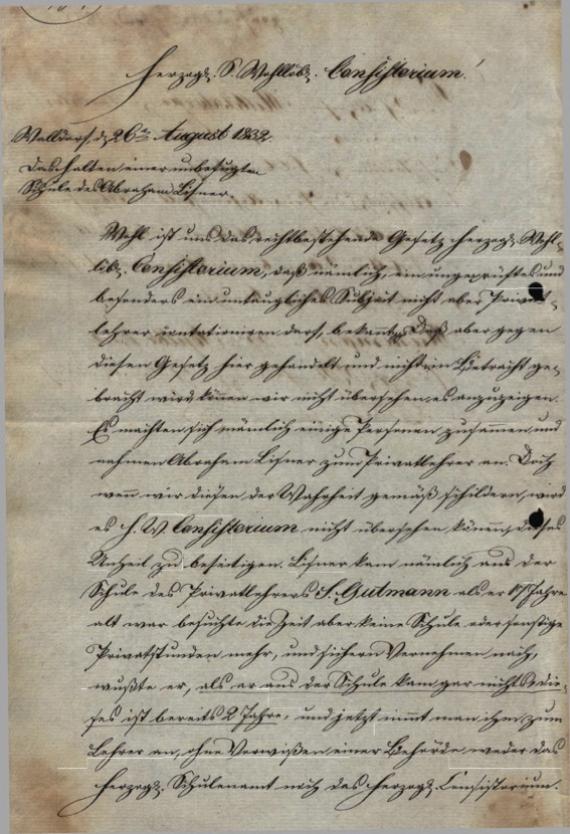 Herzogl. S. Wohllöbl. Consistorium!
Walldorf, d. 26ten August 1832.
Das Halten einer unbefugten
Schule des Abraham Lißner.
Wohl ist uns das rechtbestehende Gesetz herzogl. Wohl-
löbl. Consistorium, daß nämlich ein ungeprüftes und
besonders ein untaugliches Subjeit nicht aber Privat-
lehrer darf, bekannt. Daß aber gegen
diesen Gesetz hier gehandelt und nicht in Betracht ge-
bracht wird, könen wir nicht übersehen, es anzuzeigen.
Es machten sich nämlich einige Personen zusammen und
nahmen Abraham Lißner zum Privatlehrer an. Doch
wenn wir diesen der Wahrheit gemäß schildern, wird
es h. W. Consistorium nicht übersehen könen, dieses
Unheil zu beseitigen. Lißner kam nämlich aus der
Schule des Privatlehrers S. Gutmann als er Jahre
alt war besuchte die Zeit aber keine Schule oder sonstige
Privatstunden mehr, und sichern Vernehmen nach,
wußte er, als er aus der Schule kam gar nichts, die-
ses ist bereits 2 Jahre, und jetzt nimt man ihn zum
Lehrer an, ohne Vorwißen einer Behörde weder das
herzogl. Schulenamt noch das herzogl. Consistorium.